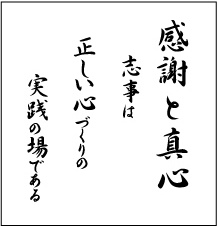 感謝と真心
志事は
正しい心づくりの
実践の場である